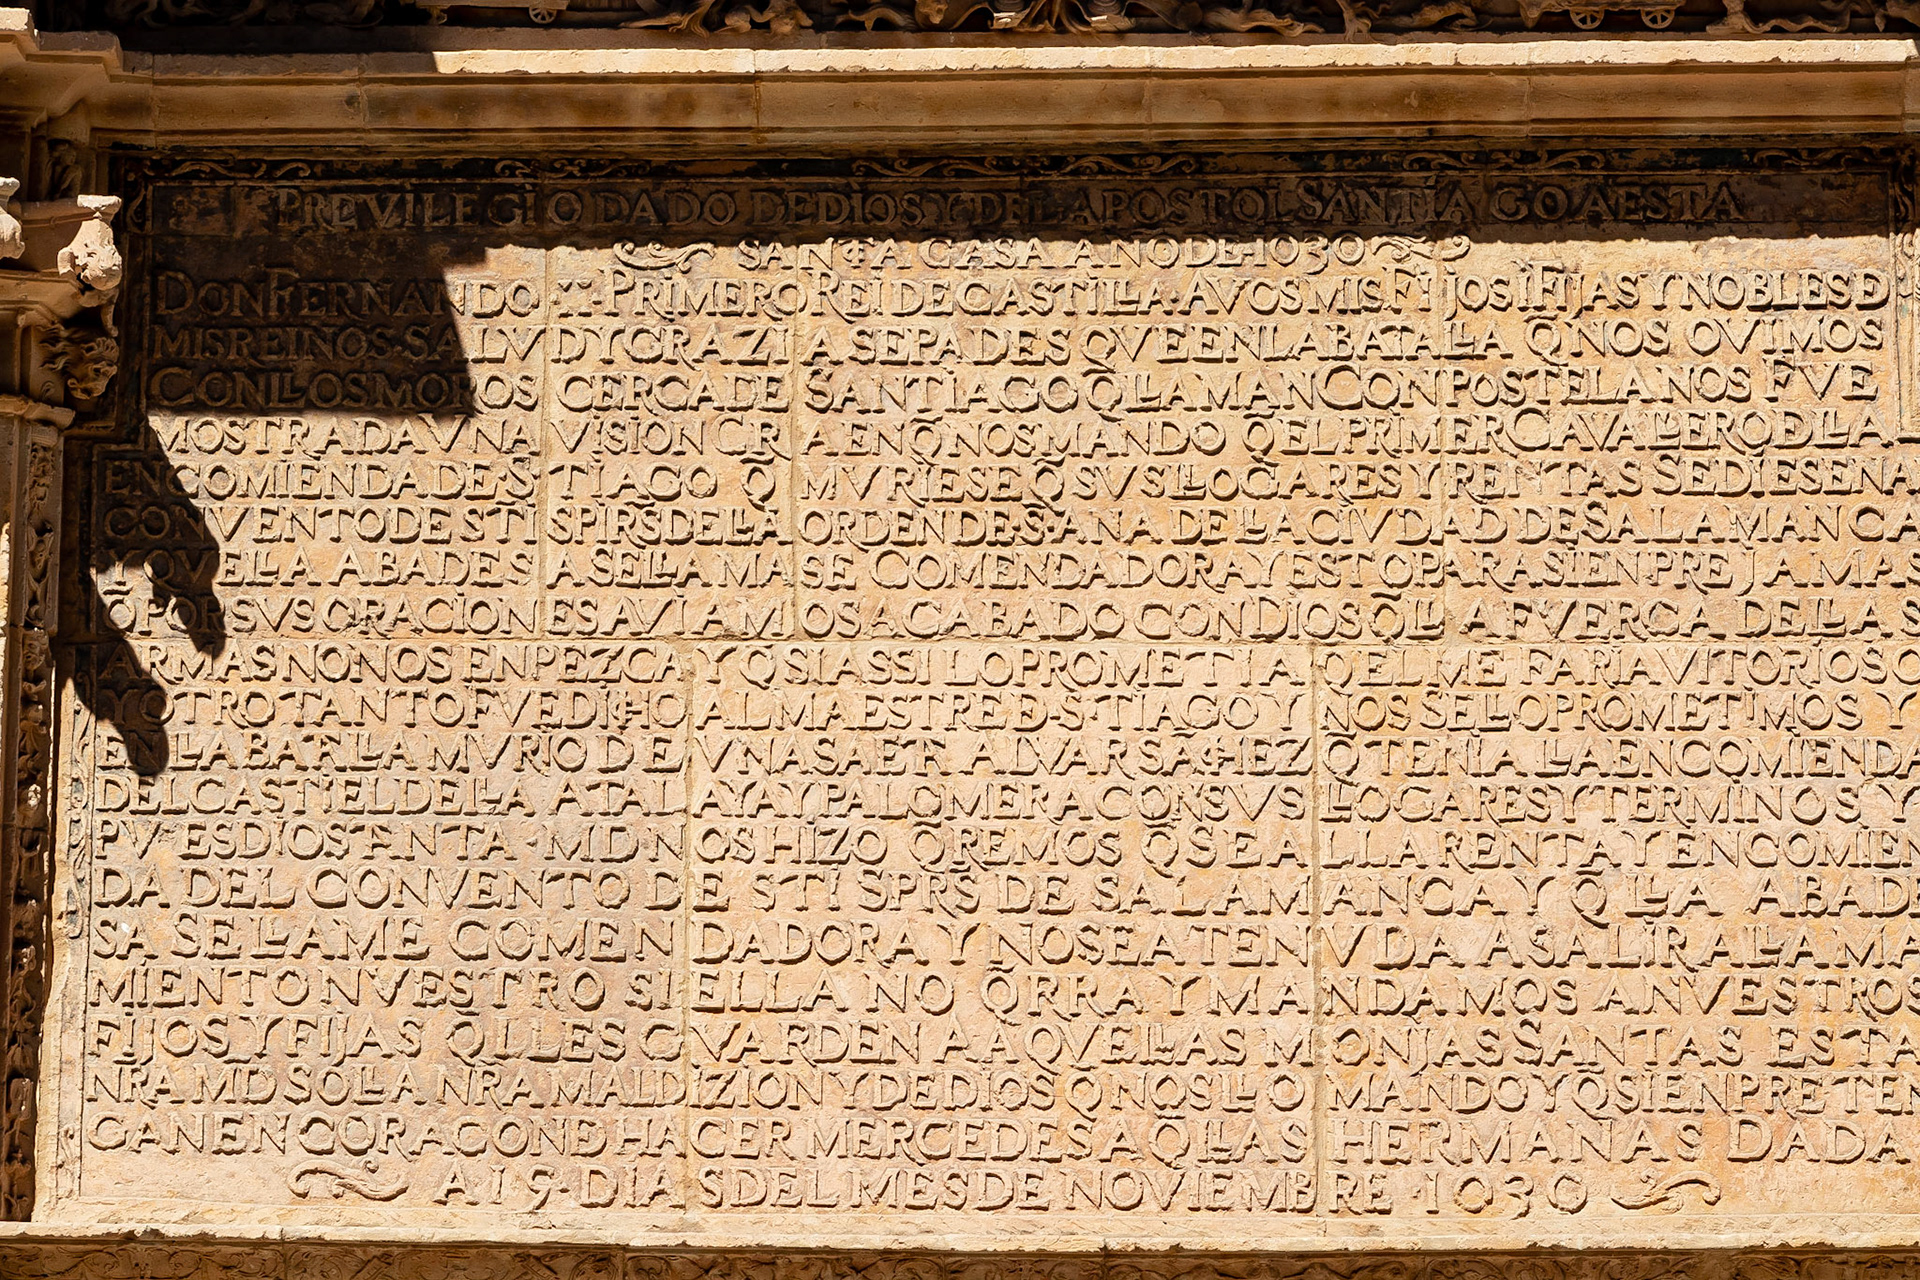 PREVILEGIO DADO DE DIOS Y DEL APOSTOL SANTIAGO A ESTA
SANTA CASA AÑO DE 1030
DON FERNANDO PRIMERO REI DE CASTILLA A VOS MIS FIJOS I FIJAS Y NOBLES D
MIS REINOS SALVD Y GRAZIA SEPADES QVE EN LA BATALLA Q̃ NOS OVIMOS
CON LLOS MOROS CERCA DE SANTIAGO Q̃ LLAMAN CONPOSTELA NOS FVE
MOSTRADA VNA VISION CRA EN Q̃ NOS MANDO Q̃ EL PRIMER CAVALLERO D LLA
ENCOMIENDA DE S TIAGO Q̃ MVRIESE Q̃ SVS LLOGARES Y RENTAS SE DIESEN A
CONVENTO DE STI SPIRS DE LLA ORDEN DE S ANA DE LLA CIVDAD DE SALAMANCA
Y QVE LLA ABADESA SE LLAMASE COMENDADORA Y ESTO PARA SIENPRE JAMAS
Q̃ POR SVS ORACIONES AVIAMOS ACABADO CON DIOS Q̃ LLA FVERCA DE LLAS
ARMAS NO NOS ENPEZCA Y Q̃ SI ASSI LO PROMETIA Q̃ EL ME FARIA VITORIOSO
Y OTRO TANTO FVE DICHO AL MAESTRE D S TIAGO Y NOS SE LLO PROMETIMOS Y
EN LLA BATALLA MVRIO DE VNA SAETA ALVAR SÃCHEZ Q̃ TENIA LLA ENCOMIENDA
DEL CASTIEL DE LLA ATALAYA Y PALOMERA CON SVS LLOGARES Y TERMINOS Y
PVES DIOS TANTA MD NOS HIZO Q̃REMOS Q̃ SEA LLA RENTA Y ENCOMIEN
DA DEL CONVENTO DE STI SPRS DE SALAMANCA Y Q̃ LLA ABADE
SA SE LLAME COMENDADORA Y NO SEA TENVDA A SALIR A LLAMA
MIENTO NVESTRO SI ELLA NO Q̃RRA Y MANDAMOS A NVESTROS
FIJOS Y FIJAS Q̃ LLES GVARDEN A AQVELLAS MONJAS SANTAS ESTA
NRA MD SO LLA NRA MALDIZION Y DE DIOS Q̃ NOS LLO MANDO Y Q̃ SIENPRE TEN
GAN EN CORACON D HACER MERCEDES A Q̃LLAS HERMANAS DADA
A 19 DIAS DEL MES DE NOVIEMBRE 1030